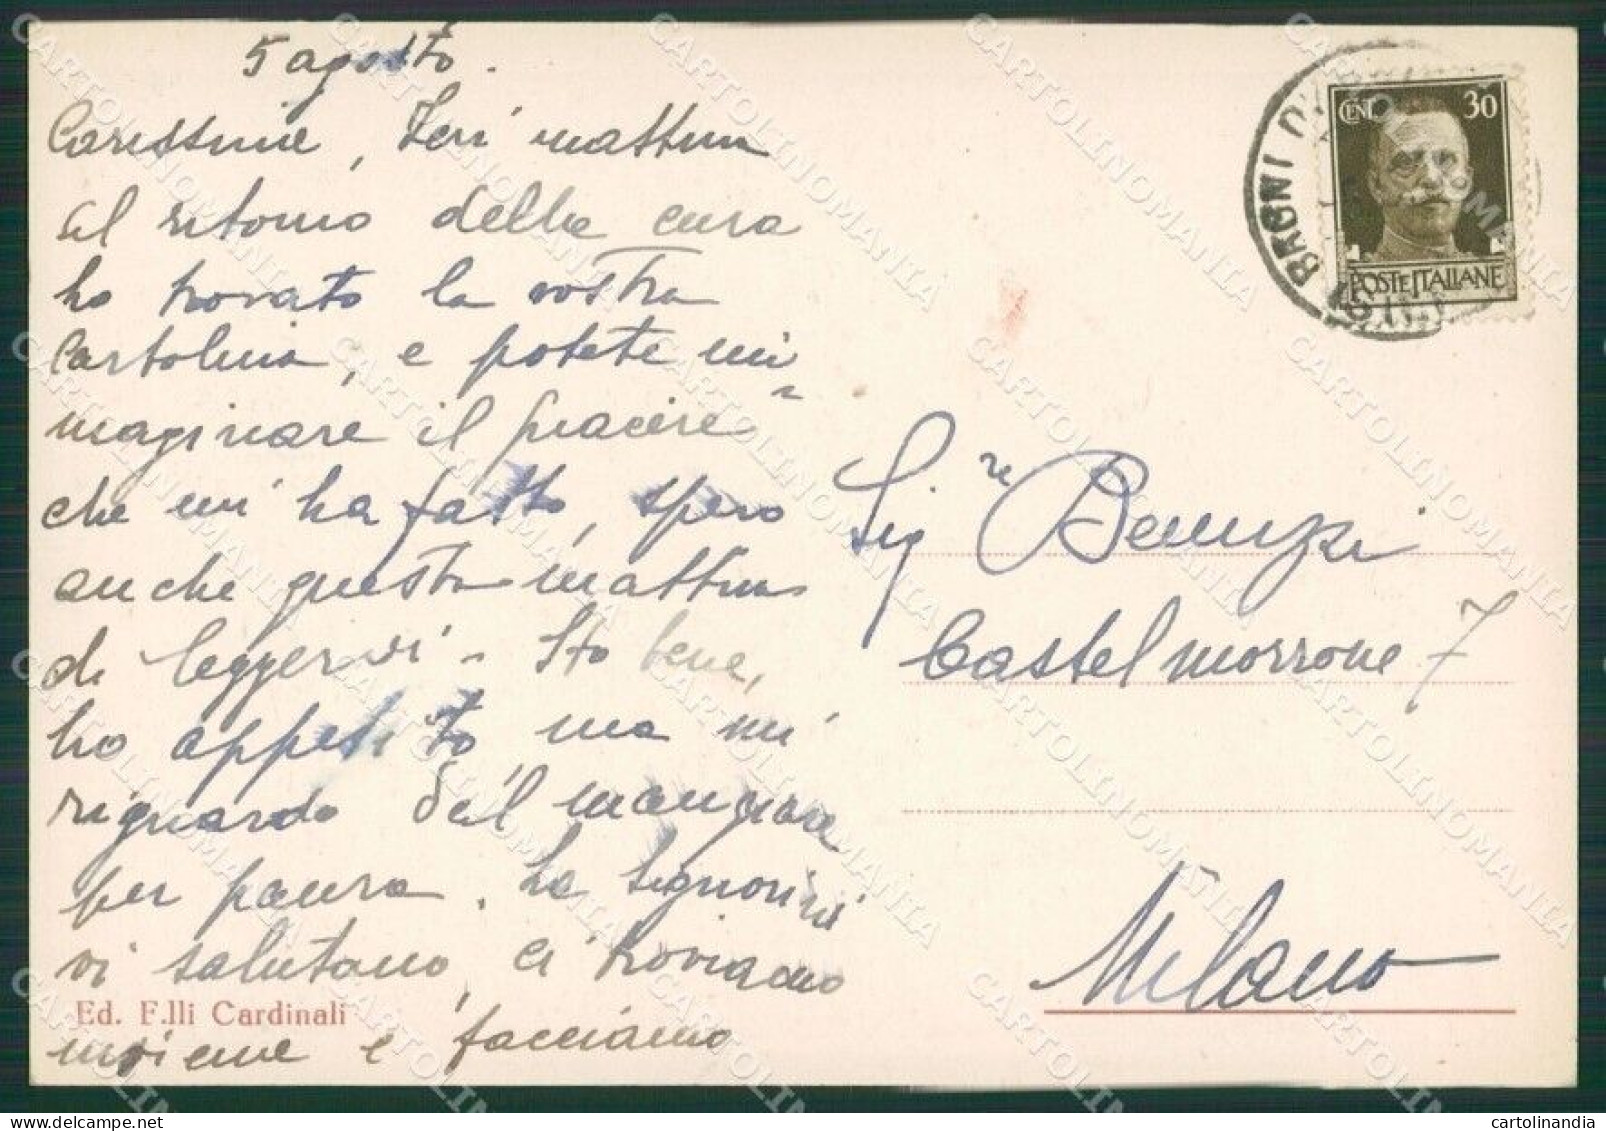 5 agosto.
Carissime, Ieri mattina
al ritorno della cura
ho trovato la vostra
Cartolina, e potete im
maginare il piacere
che mi ha fatto, spero
anche questa mattina
di leggervi - Sto bene,
ho appetito ma mi
riguardo dal mangiare
per paura. Le Signorine
vi salutano, ci troviamo
insieme e facciamo
Ed. F.lli Cardinali
BAGNI DI
CENT 30
POSTE ITALIANE
Sig.re Benuzzi
Castelmorrone 7
Milano
CARTOLINOMANIA
cartolinandia